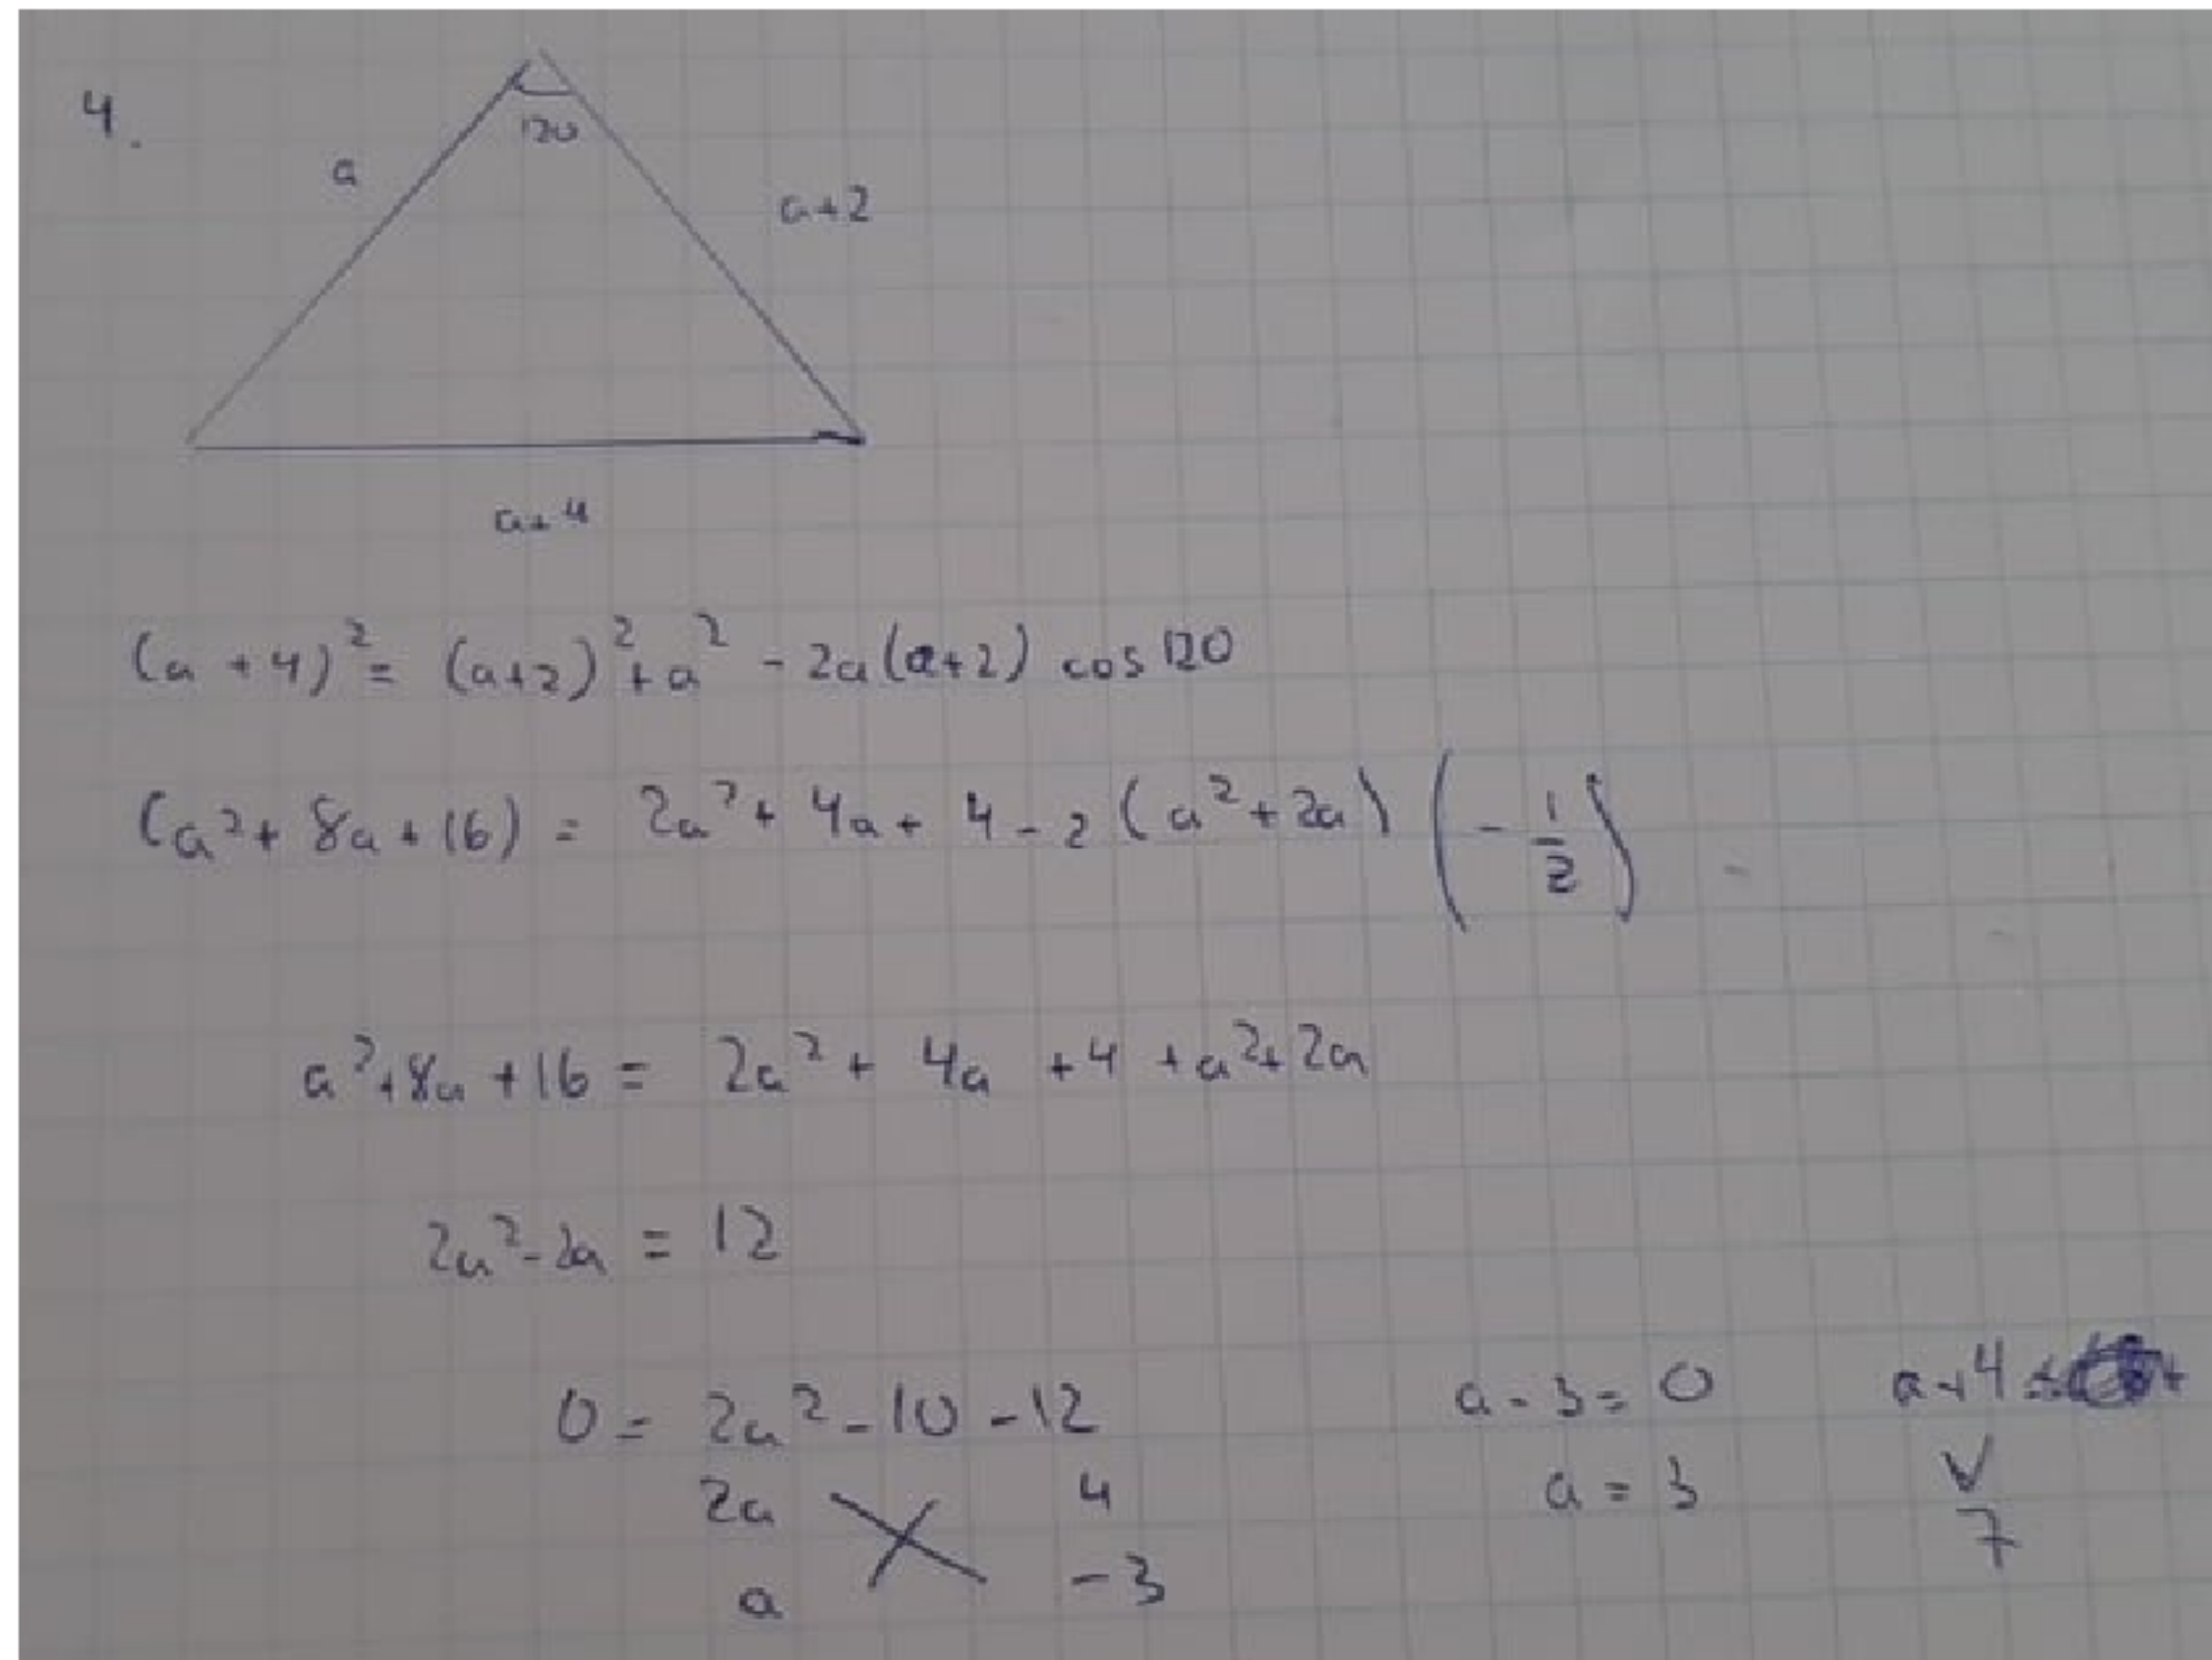 4.
120
a
a+2
a+4
(a+4)² = (a+2)² + a² - 2a(a+2) cos 120
(a² + 8a + 16) = 2a² + 4a + 4 - 2(a² + 2a)(-1/2)
a² + 8a + 16 = 2a² + 4a + 4 + a² + 2a
2a² - 2a = 12
0 = 2a² - 10 - 12
2a 4
a -3
a - 3 = 0
a = 3
a+4
7